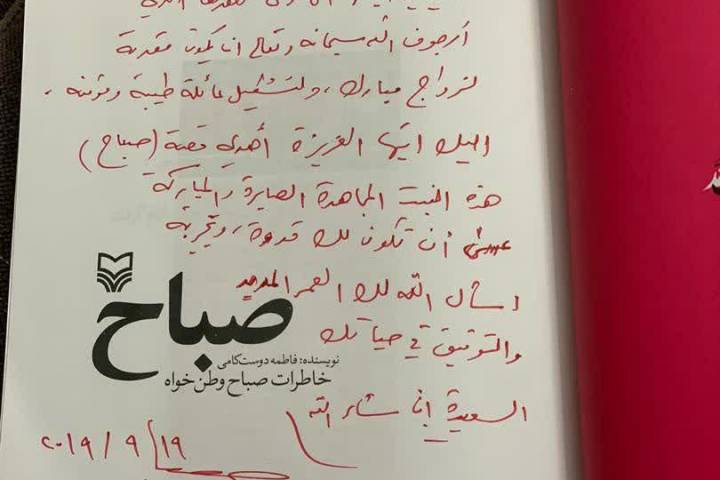 أرجو من الله سبحانه وتعالى ان يكون مقدمة
لزواج مبارك، ولتشكيل عائلة طيبة ومؤمنة.
اليك ايتها العزيزة أهدي قصة (صباح)
هذه البنت المجاهدة الصابرة والمباركة
عسى أن تكون لك قدوة، وتجربة
اسأل الله لك العمر المديد
والتوفيق في حياتك
السعيدة إن شاء الله
٢٠١٩/٩/١٩
صباح
نویسنده: فاطمه دوست‌کامی
خاطرات صباح وطن‌خواه